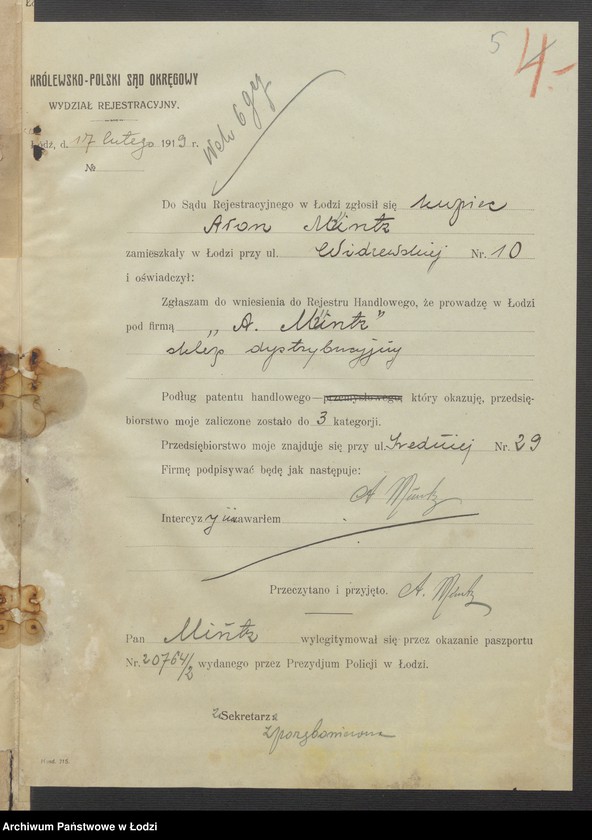 5 4.-
KRÓLEWSKO-POLSKI SĄD OKRĘGOWY
WYDZIAŁ REJESTRACYJNY.
Łódź, d. 17 lutego 1919 r.
№
Do Sądu Rejestracyjnego w Łodzi zgłosił się kupiec
Aron Mintz
zamieszkały w Łodzi przy ul. Widzewskiej Nr. 10
i oświadczył:
Zgłaszam do wniesienia do Rejestru Handlowego, że prowadzę w Łodzi
pod firmą „A. Mintz"
sklep dystrybucyjny
Podług patentu handlowego—przemysłowego, który okazuję, przedsię-
biorstwo moje zaliczone zostało do 3 kategorji.
Przedsiębiorstwo moje znajduje się przy ul. Średniej Nr. 29
Firmę podpisywać będę jak następuje:
A
Intercyzy nie zawarłem
Przeczytano i przyjęto. A.
Pan wylegitymował się przez okazanie paszportu
Nr. 20764/2 wydanego przez Prezydjum Policji w Łodzi.
Sekretarz
Archiwum Państwowe w Łodzi